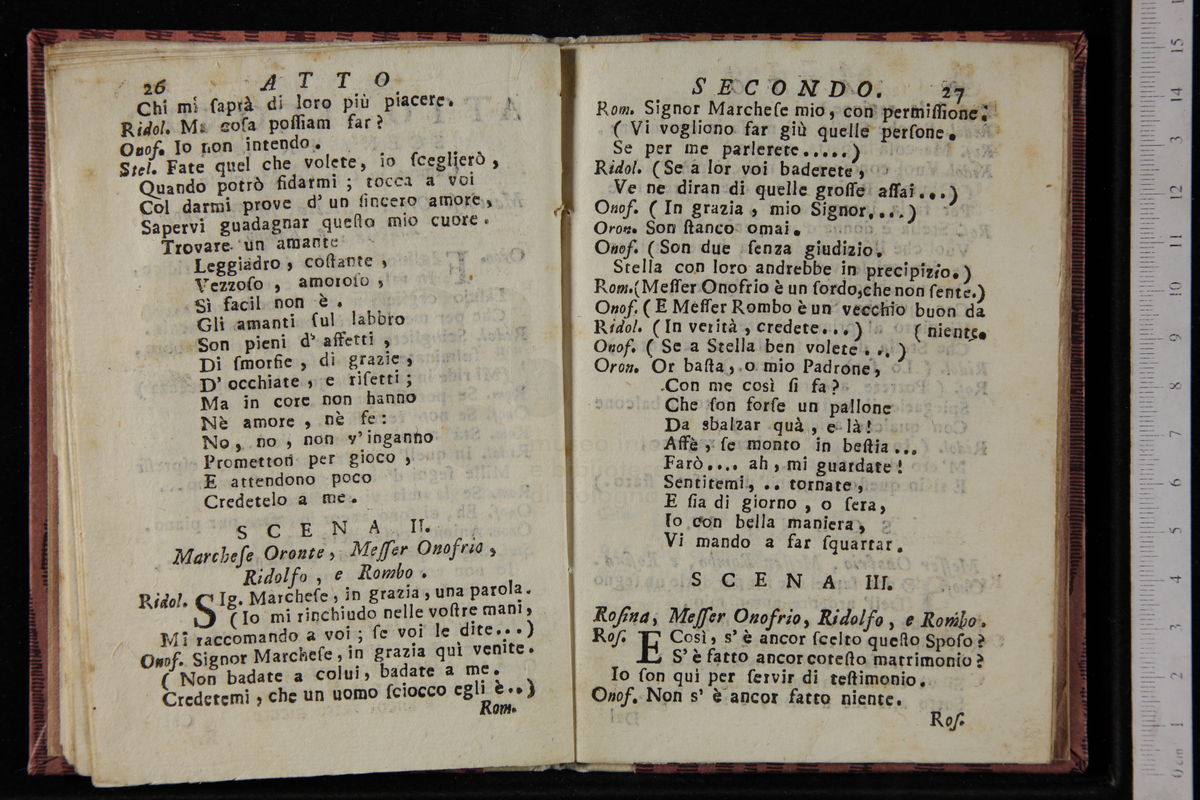 26 ATTO
Chi mi ſaprà di loro più piacere.
Ridol. Ma coſa poſſiam far?
Onof. Io non intendo.
Stel. Fate quel che volete, io ſceglierò,
Quando potrò fidarmi; tocca a voi
Col darmi prove d'un ſincero amore,
Sapervi guadagnar queſto mio cuore.
Trovare un amante
Leggiadro, coſtante,
Vezzoſo, amoroſo,
Sì facil non è.
Gli amanti ſul labbro
Son pieni d'affetti,
Di ſmorfie, di grazie,
D'occhiate, e riſetti;
Ma in core non hanno
Nè amore, nè fe:
No, no, non v'inganno
Promettori per gioco,
E attendono poco
Credetelo a me.
SCENA II.
Marcheſe Oronte, Meſſer Onofrio,
Ridolfo, e Rombo.
Ridol. SIg. Marcheſe, in grazia, una parola.
(Io mi rinchiudo nelle voſtre mani,
Mi raccomando a voi; ſe voi le dite...)
Onof. Signor Marcheſe, in grazia quì venite.
(Non badate a colui, badate a me.
Credetemi, che un uomo ſciocco egli è..)
Rom.
SECONDO. 27
Rom. Signor Marcheſe mio, con permiſſione:
(Vi vogliono far giù quelle perſone.
Se per me parlerete.....)
Ridol. (Se a lor voi baderete,
Ve ne diran di quelle groſſe aſſai...)
Onof. (In grazia, mio Signor....)
Oron. Son ſtanco omai.
Onof. (Son due ſenza giudizio.
Stella con loro andrebbe in precipizio.)
Rom. (Meſſer Onofrio è un ſordo, che non ſente.)
Onof. (E Meſſer Rombo è un vecchio buon da
Ridol. (In verità, credete...) (niente.
Onof. (Se a Stella ben volete...)
Oron. Or baſta, o mio Padrone,
Con me così ſi fa?
Che ſon forſe un pallone
Da sbalzar quà, e là!
Affè, ſe monto in beſtia...
Farò.... ah, mi guardate!
Sentitemi, .. tornate,
E ſia di giorno, o ſera,
Io con bella maniera,
Vi mando a far ſquartar.
SCENA III.
Roſina, Meſſer Onofrio, Ridolfo, e Rombo.
Roſ. ECosì, s'è ancor ſcelto queſto Spoſo?
S'è fatto ancor coteſto matrimonio?
Io ſon qui per ſervir di teſtimonio.
Onof. Non s'è ancor fatto niente.
Roſ.